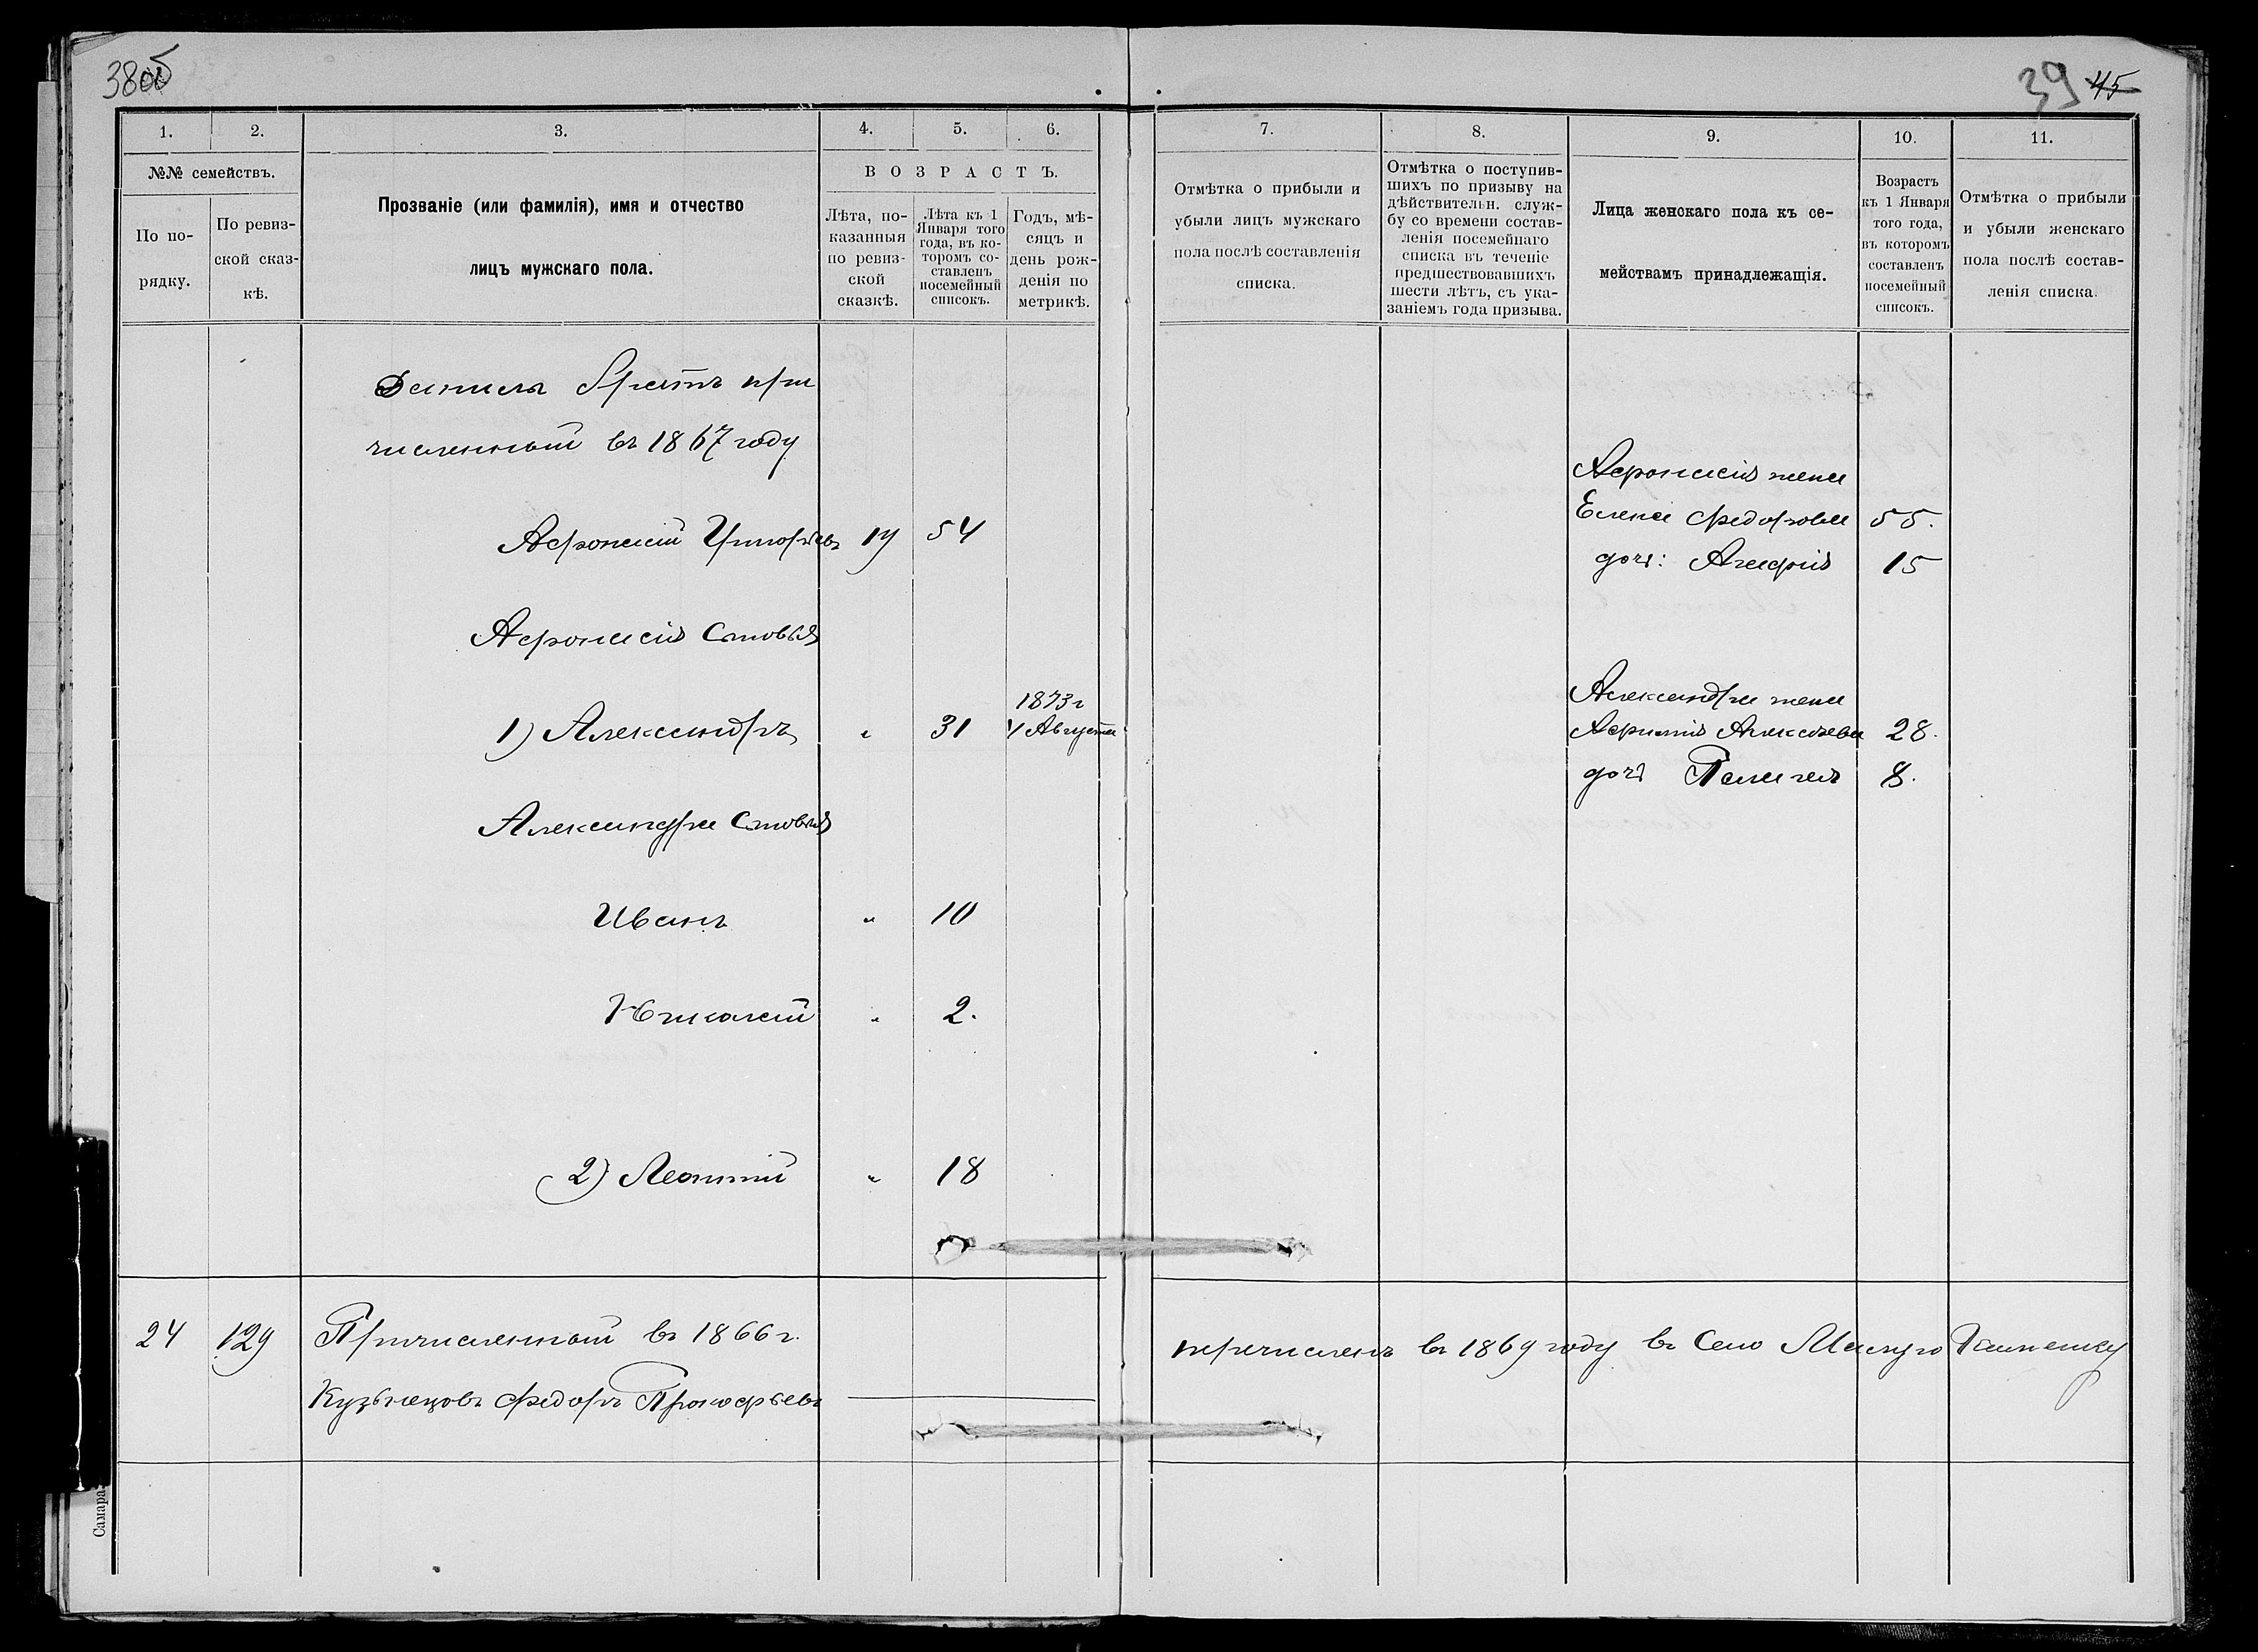 38об
39 45
1. 2. 3. 4. 5. 6.
№№ семействъ.
По по-
рядку.
По ревиз-
ской сказ-
кѣ.
Прозваніе (или фамилія), имя и отчество
лицъ мужскаго пола.
ВОЗРАСТЪ.
Лѣта, по-
казанныя
по ревиз-
ской
сказкѣ.
Лѣта къ 1
Января того
года, въ ко-
торомъ со-
ставленъ
посемейный
списокъ.
Годъ, мѣ-
сяцъ и
день рож-
денія по
метрикѣ.
7. 8. 9. 10. 11.
Отмѣтка о прибыли и
убыли лицъ мужскаго
пола послѣ составленія
списка.
Отмѣтка о поступив-
шихъ по призыву на
дѣйствительн. служ-
бу со времени состав-
ленія посемейнаго
списка въ теченіе
предшествовавшихъ
шести лѣтъ, съ ука-
заніемъ года призыва.
Лица женскаго пола къ се-
мействамъ принадлежащія.
Возрастъ
къ 1 Января
того года,
въ которомъ
составленъ
посемейный
списокъ.
Отмѣтка о прибыли
и убыли женскаго
пола послѣ состав-
ленія списка.
Данила братъ при
численный въ 1867 году
Афонасій Григорьевъ 19 54
Афонасія сыновья
1) Александръ " 31 1873г
4 Августа
Александра сыновья
Иванъ " 10
Николай " 2.
2) Леонтій " 18
Афонасія жена
Елена Федорова 55.
дочь: Агафия 15
Александра жена
Афимія Алексѣева 28.
дочь Палагея 8.
24 129 Причисленный въ 1866 г.
Кузнецовъ Федоръ Прокофьевъ
перечисленъ въ 1869 году въ Село Малую Каменку
Самара